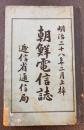 明治二十八年二月上梓
朝鮮電信誌
逓信省通信局